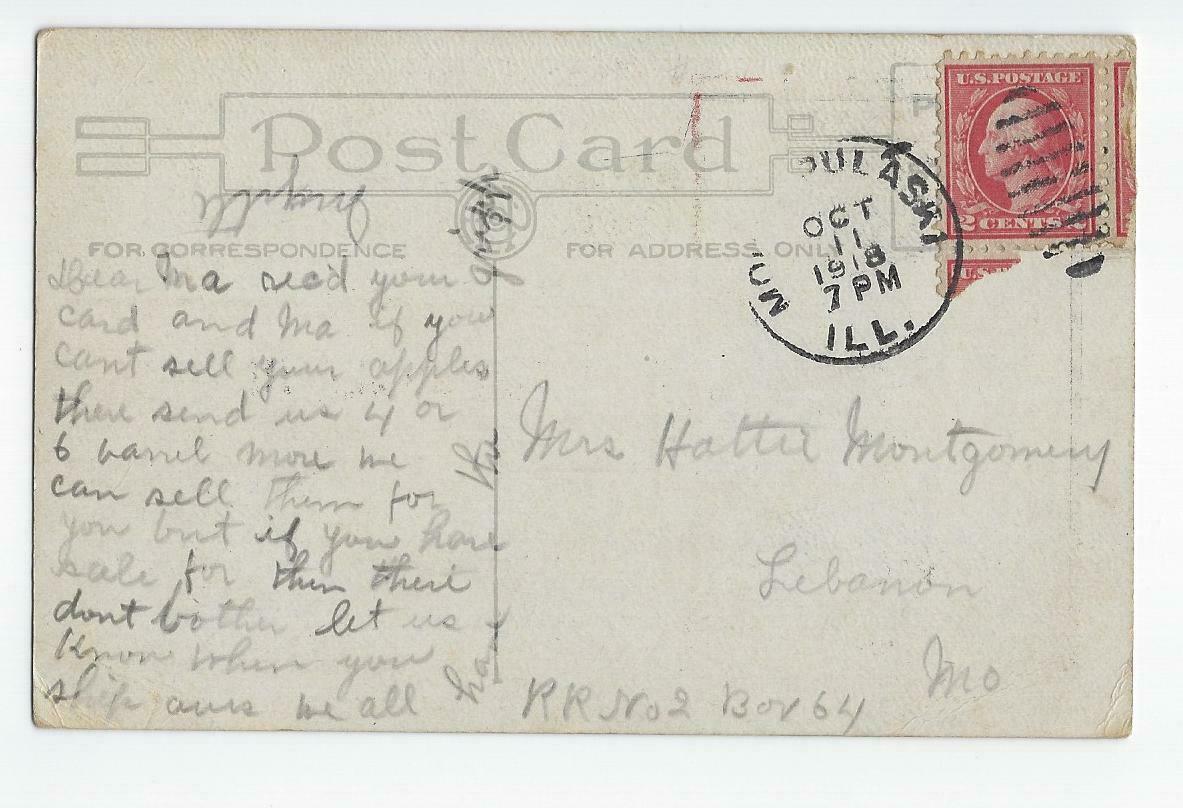 Post Card
FOR CORRESPONDENCE
FOR ADDRESS ONLY
U.S. POSTAGE
2 CENTS 2
PULASKI
MOU
OCT
11
1918
7 PM
ILL.
Dear Ma rec'd your
card and Ma if you
cant sell your apples
there send us 4 or
6 barrel more we
can sell them for
you but if you have
sale for them there
dont bother let us
Know when you
ship ours we all
have the
Mrs Hattie Montgomery
Lebanon
Mo
RR No 2 Box 64